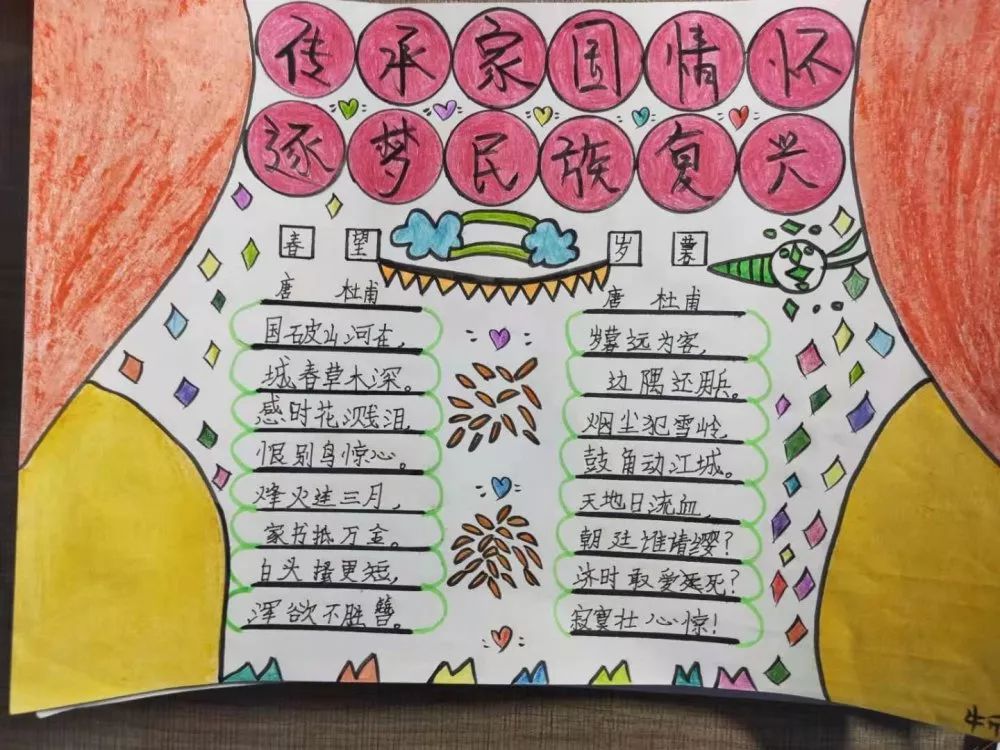 传承家国情怀
逐梦民族复兴
春望
唐 杜甫
国破山河在,
城春草木深。
感时花溅泪,
恨别鸟惊心。
烽火连三月,
家书抵万金。
白头搔更短,
浑欲不胜簪。
岁暮
唐 杜甫
岁暮远为客,
边隅还用兵。
烟尘犯雪岭,
鼓角动江城。
天地日流血,
朝廷谁请缨?
济时敢爱死?
寂寞壮心惊!